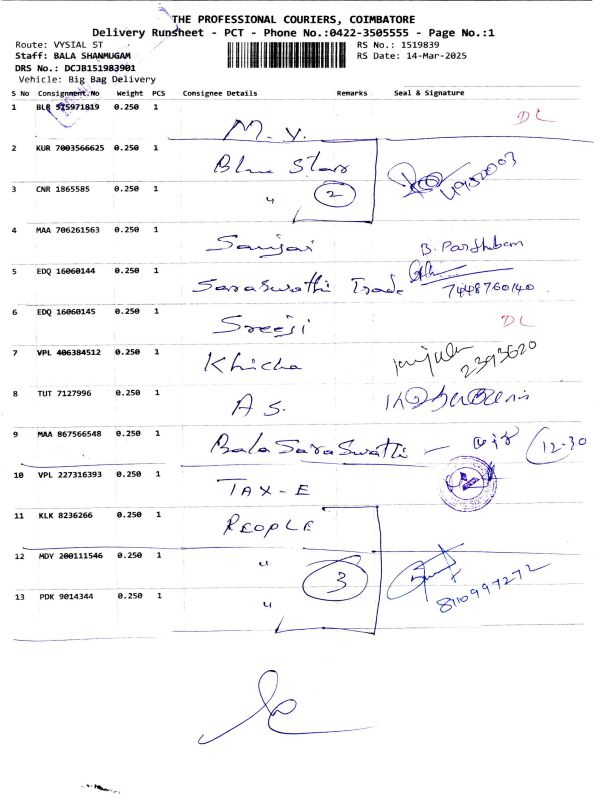 THE PROFESSIONAL COURIERS, COIMBATORE
Delivery Runsheet - PCT - Phone No.:0422-3505555 - Page No.:1
Route: VYSIAL ST
RS No.: 1519839
Staff: BALA SHANMUGAM
RS Date: 14-Mar-2025
DRS No.: DCJB151983901
Vehicle: Big Bag Delivery
S No Consignment.No Weight PCS Consignee Details Remarks Seal & Signature
1 BLR 515971819 0.250 1 M. Y. DL
2 KUR 7003566625 0.250 1 Blue Starr
3 CNR 1865585 0.250 1 " 2
4 MAA 706261563 0.250 1 Sanjai B. Parthibam
5 EDQ 16060144 0.250 1 Saraswathi Trade 7448760140
6 EDQ 16060145 0.250 1 Sreeji DL
7 VPL 406384512 0.250 1 Khicha 2393620
8 TUT 7127996 0.250 1 A S.
9 MAA 867566548 0.250 1 Bala Saraswathi - 12-30
10 VPL 227316393 0.250 1 TAX-E
11 KLK 8236266 0.250 1 PEOPLE
12 MDY 200111546 0.250 1 " 3
13 PDK 9014344 0.250 1 " 8110997272